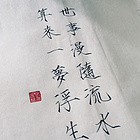 世事漫隨流水
算来一夢浮生